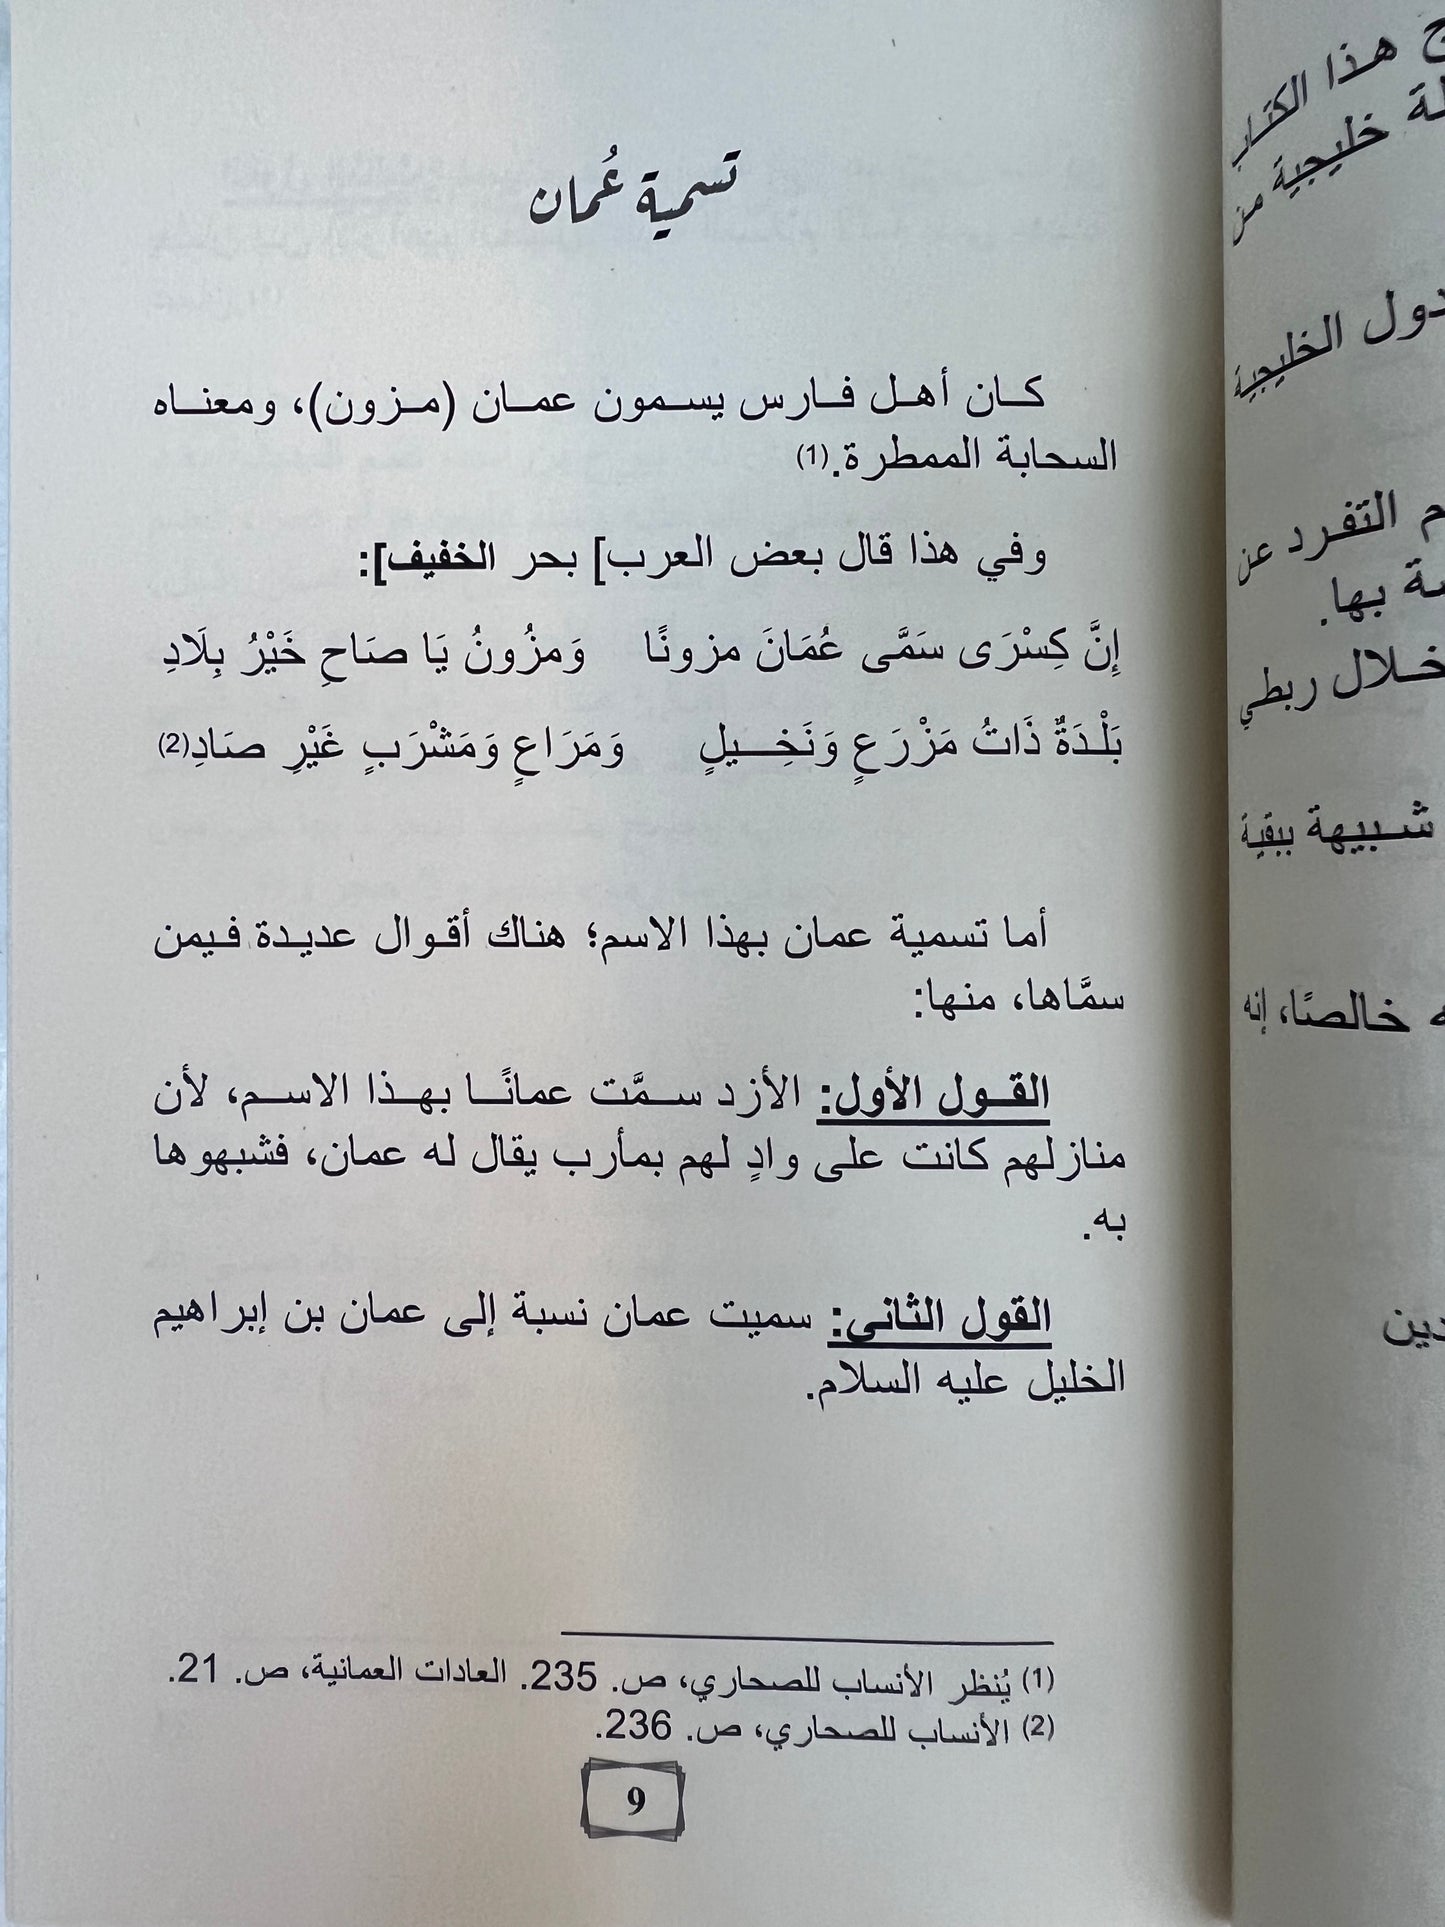 تسمية عُمان
كـان أهـل فـارس يسـمون عمـان (مـزون)، ومعنـاه
السحابة الممطرة.(1)
وفي هذا قال بعض العرب] بحر الخفيف]:
إِنَّ كِسْرَى سَمَّى عُمَانَ مزونًا وَمزُونُ يَا صَاحِ خَيْرُ بِلَادِ
بَلْدَةٌ ذَاتُ مَزْرَعٍ وَنَخِـــيلٍ وَمَرَاعٍ وَمَشْرَبٍ غَيْرِ صَادِ(2)
أما تسمية عمان بهذا الاسم؛ هناك أقوال عديدة فيمن
سمَّاها، منها:
القـول الأول: الأزد سـمَّت عمانًـا بهـذا الاسـم، لأن
منازلهم كانت على وادٍ لهم بمأرب يقال له عمان، فشبهوها
به.
القول الثاني: سميت عمان نسبة إلى عمان بن إبراهيم
الخليل عليه السلام.
(1) يُنظر الأنساب للصحاري، ص. 235. العادات العمانية، ص. 21.
(2) الأنساب للصحاري، ص. 236.
9
ج هذا الكتاب
لة خليجية من
دول الخليجية
م التفرد عن
سة بها.
خلال ربطي
شبيهة ببقية
ه خالصًا، إنه
دين